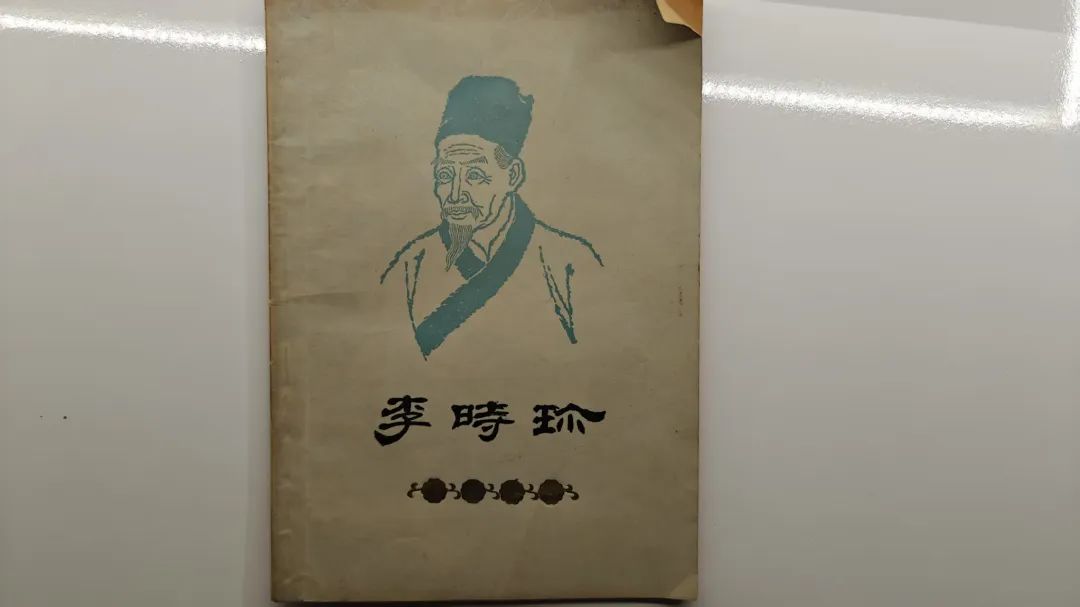 李時珍